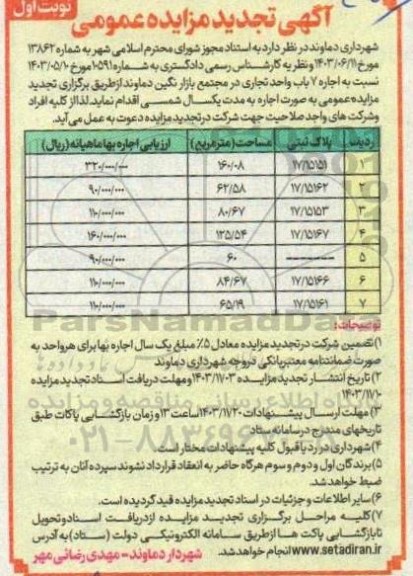 نوبت اول
آگهی تجدید مزایده عمومی
شهرداری دماوند در نظر دارد به استناد مجوز شورای محترم اسلامی شهر به شماره ۱۳۸۶۲
مورخ ۱۴۰۳/۰۶/۱۱ و نظریه کارشناس رسمی دادگستری به شماره ۱۰۵۹۱ مورخ ۱۴۰۳/۰۵/۱۰
نسبت به اجاره ۷ باب واحد تجاری در مجتمع بازار نگین دماوند از طریق برگزاری تجدید
مزایده عمومی به صورت اجاره به مدت یکسال شمسی اقدام نماید. لذا از کلیه افراد
وشرکت های واجد صلاحیت جهت شرکت در تجدید مزایده دعوت به عمل می آید.
ردیف پلاک ثبتی مساحت (متر مربع) ارزیابی اجاره بها ماهیانه (ریال)
۱ ۱۷/۱۵۱۵۱ ۱۶۰/۰۸ ۳۲۰/۰۰۰/۰۰۰
۲ ۱۷/۱۵۱۶۲ ۶۲/۵۸ ۹۰/۰۰۰/۰۰۰
۳ ۱۷/۱۵۱۵۳ ۸۰/۶۷ ۱۱۰/۰۰۰/۰۰۰
۴ ۱۷/۱۵۱۶۷ ۱۲۵/۵۴ ۱۶۰/۰۰۰/۰۰۰
۵ ــــــــ ۶۰ ۹۰/۰۰۰/۰۰۰
۶ ۱۷/۱۵۱۶۶ ۸۴/۶۷ ۱۱۰/۰۰۰/۰۰۰
۷ ۱۷/۱۵۱۶۱ ۶۵/۱۹ ۱۱۰/۰۰۰/۰۰۰
ParsNamadData
توضیحات:
۱) تضمین شرکت در تجدید مزایده معادل ۵٪ مبلغ یک سال اجاره بها برای هر واحد به
صورت ضمانتنامه معتبر بانکی در وجه شهرداری دماوند
۲) تاریخ انتشار تجدید مزایده ۱۴۰۳/۱۱/۰۳ و مهلت دریافت اسناد تجدید مزایده
۱۴۰۳/۱۱/۱۰
۳) مهلت ارسال پیشنهادات ۱۴۰۳/۱۱/۲۰ ساعت ۱۳ و زمان بازگشایی پاکات طبق
تاریخهای مندرج در سامانه ستاد
۴) شهرداری در رد یا قبول کلیه پیشنهادات مختار است.
۵) برندگان اول و دوم و سوم هرگاه حاضر به انعقاد قرارداد نشوند سپرده آنان به ترتیب
ضبط خواهد شد.
۶) سایر اطلاعات و جزئیات در اسناد تجدید مزایده قید گردیده است.
۷) کلیه مراحل برگزاری تجدید مزایده از دریافت اسناد و تحویل
تا بازگشایی پاکت ها از طریق سامانه الکترونیکی دولت (ستاد) به آدرس
www.setadiran.ir انجام خواهد شد.
شهردار دماوند - مهدی رضائی مهر